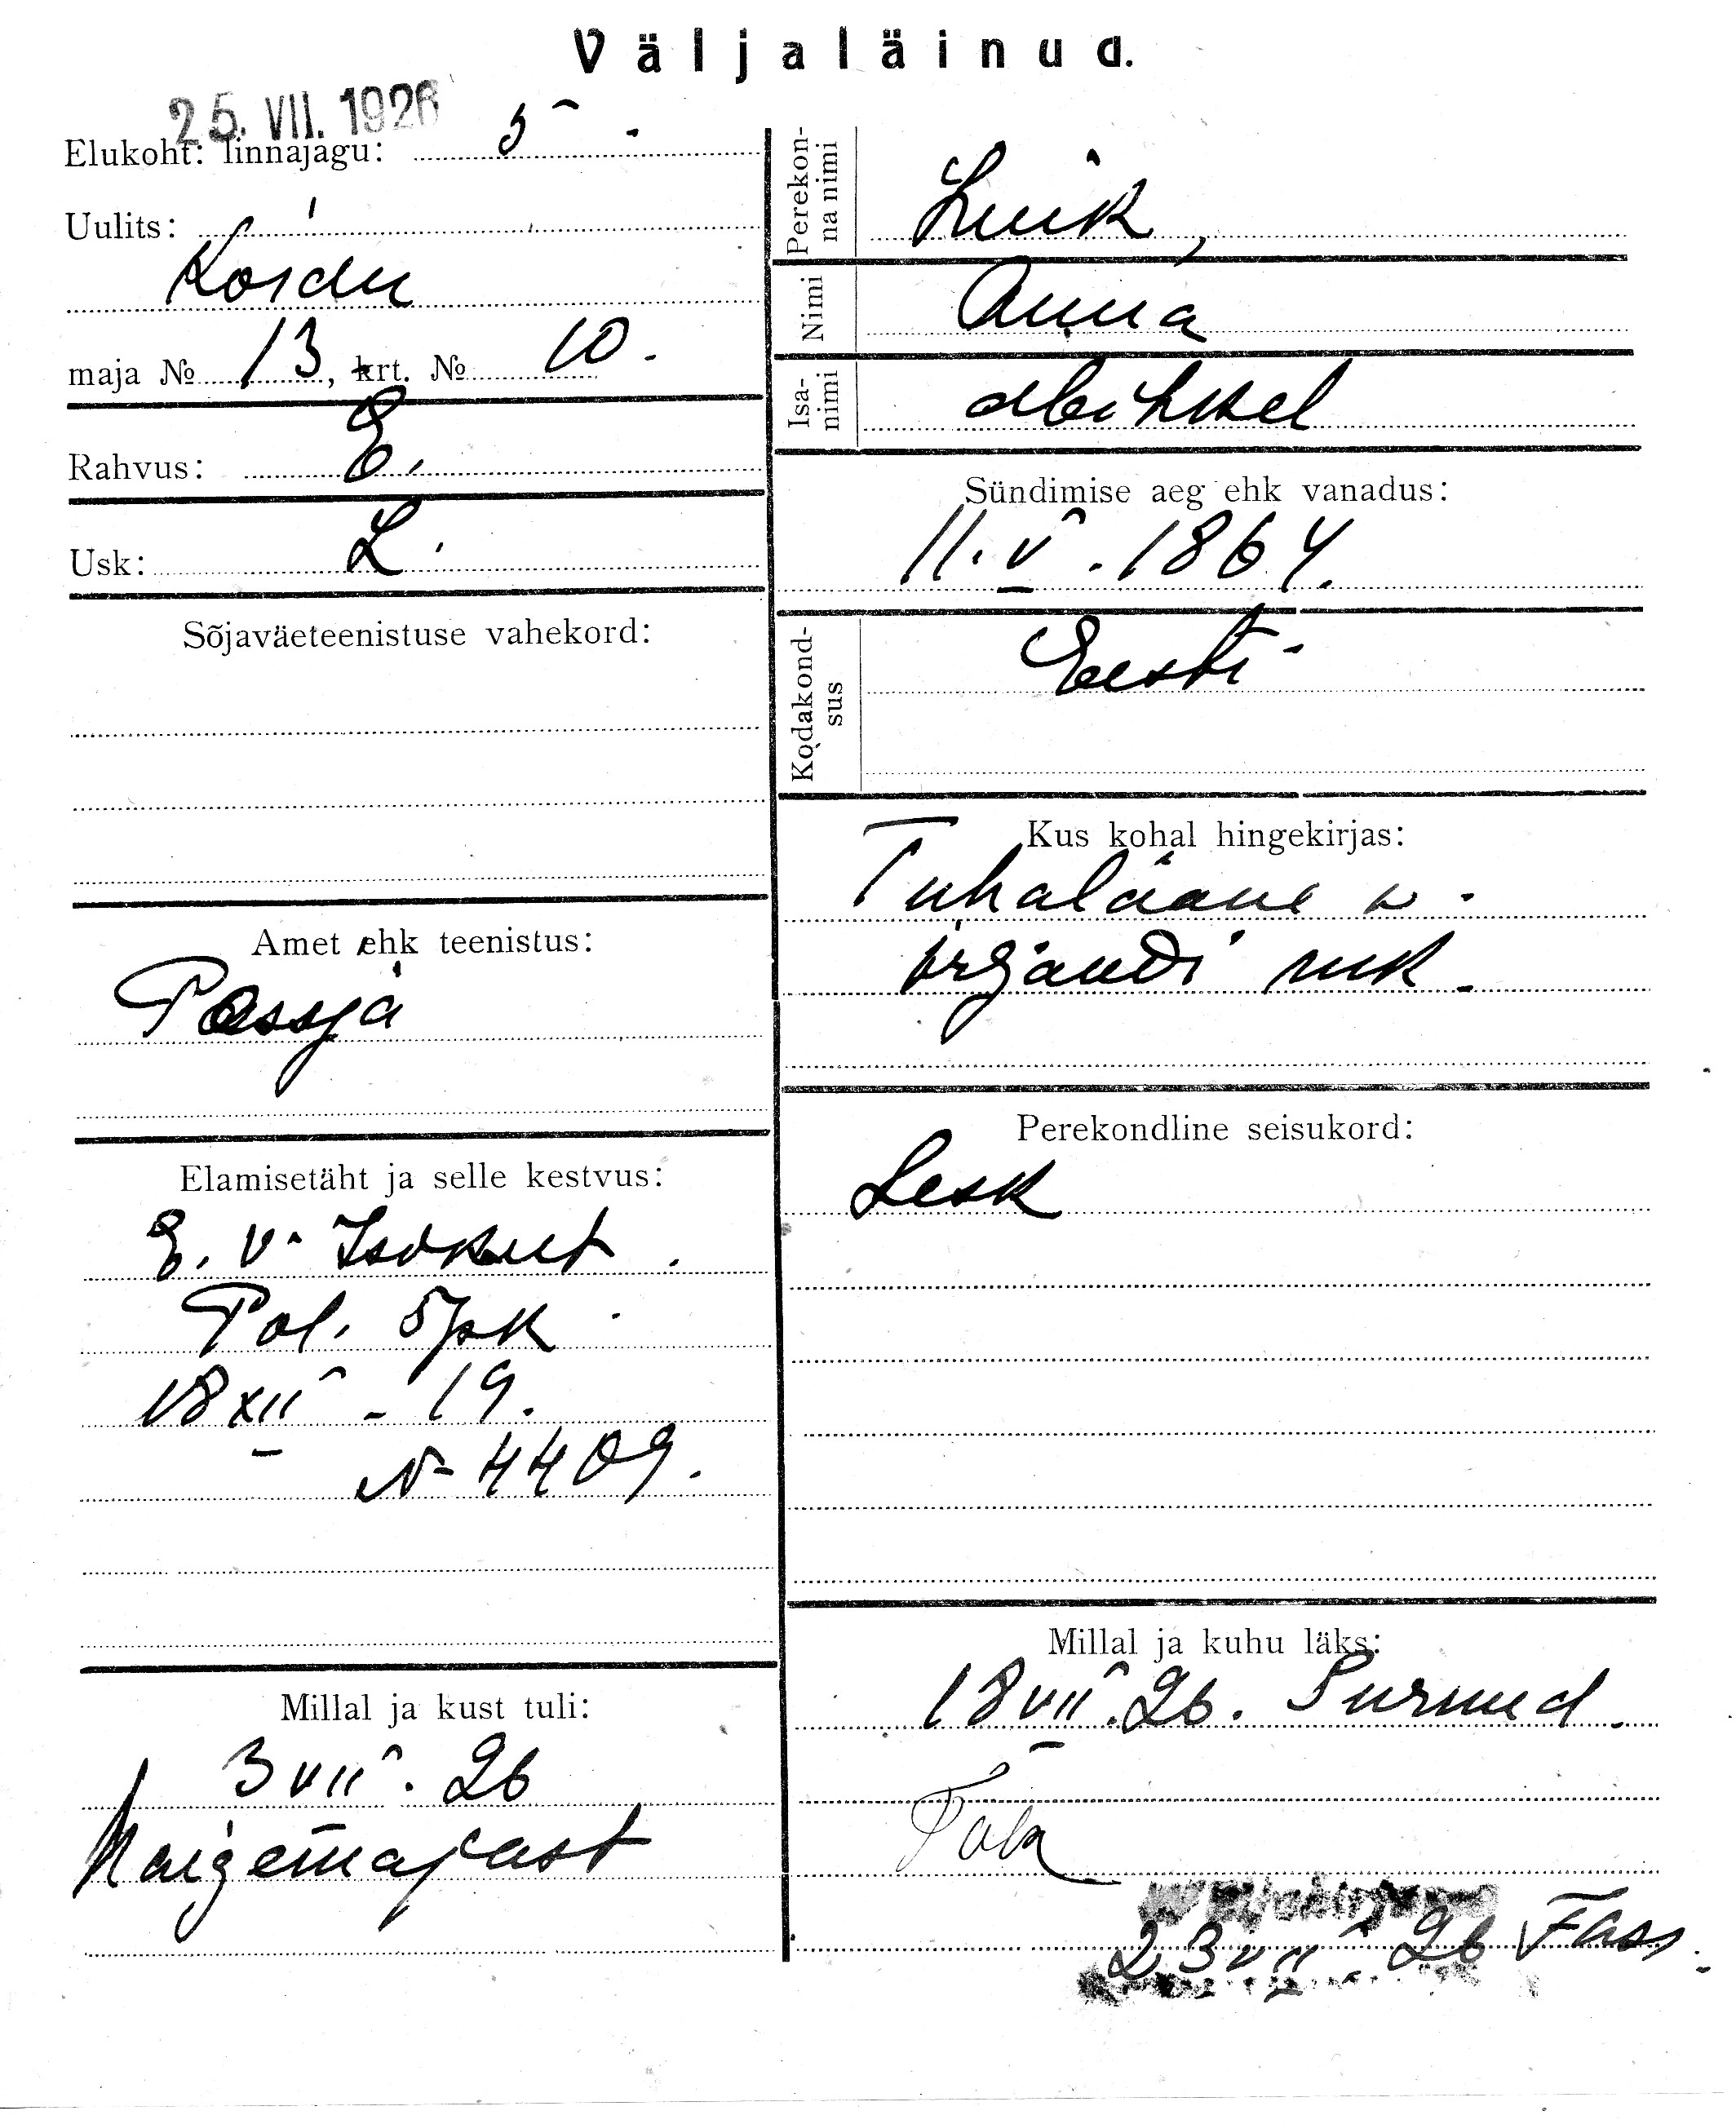 Väljaläinud.
25. VII. 1926
Elukoht: linnajagu: 5 .
Uulits:
Koidu
maja № 13, krt. № 10.
Rahvus: E.
Usk: L.
Sõjaväeteenistuse vahekord:
Amet ehk teenistus:
Elamisetäht ja selle kestvus:
E. V. Isikut.
Pol. 5 jsk
18 XII - 19.
N- 4409.
Millal ja kust tuli:
3 VII. 26
Haigemajast
Perekonna nimi
Luik,
Nimi
Anna
Isanimi
Mihkel
Sündimise aeg ehk vanadus:
11. V. 1864.
Kodakondsus
Eesti
Kus kohal hingekirjas:
Tuhalaane v.
Viljandi mk.
Perekondline seisukord:
Lesk
Millal ja kuhu läks:
18 VII. 26. Surnud.
23 VII 26